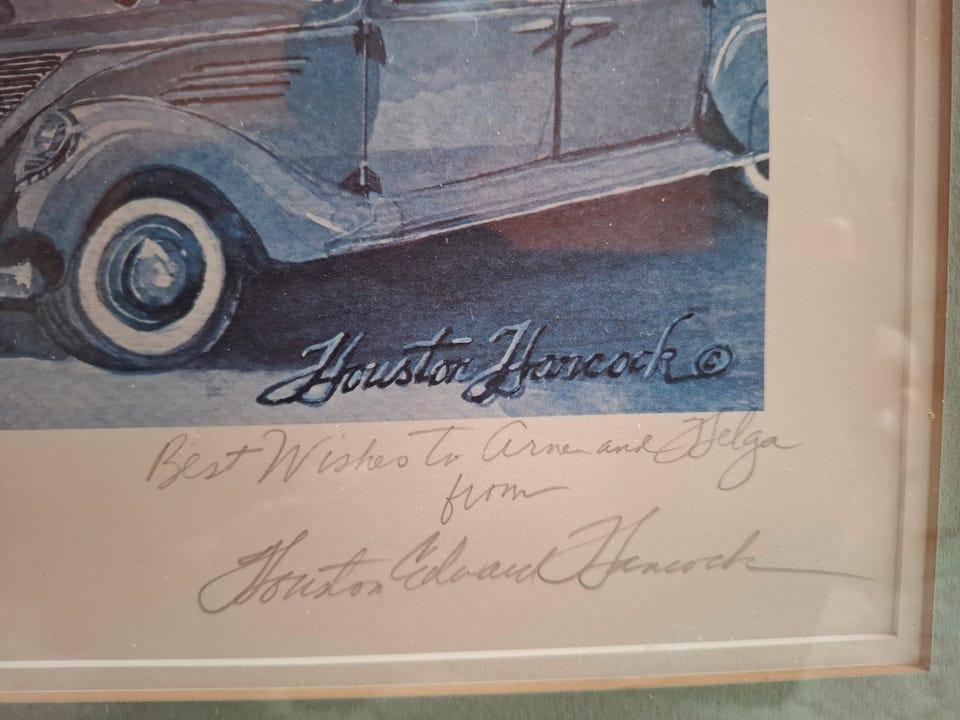 Houston Hancock ©
Best Wishes to Arne and Helga
from
Houston Edward Hancock